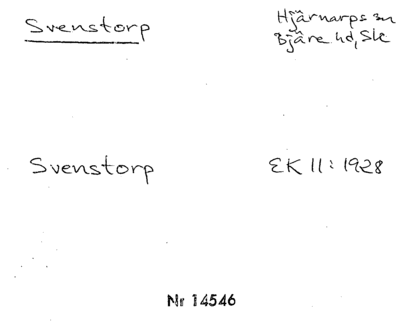 Svenstorp
Hjärnarps sn
Bjäre hd, Sk
Svenstorp
EK II: 1928
Nr 14546